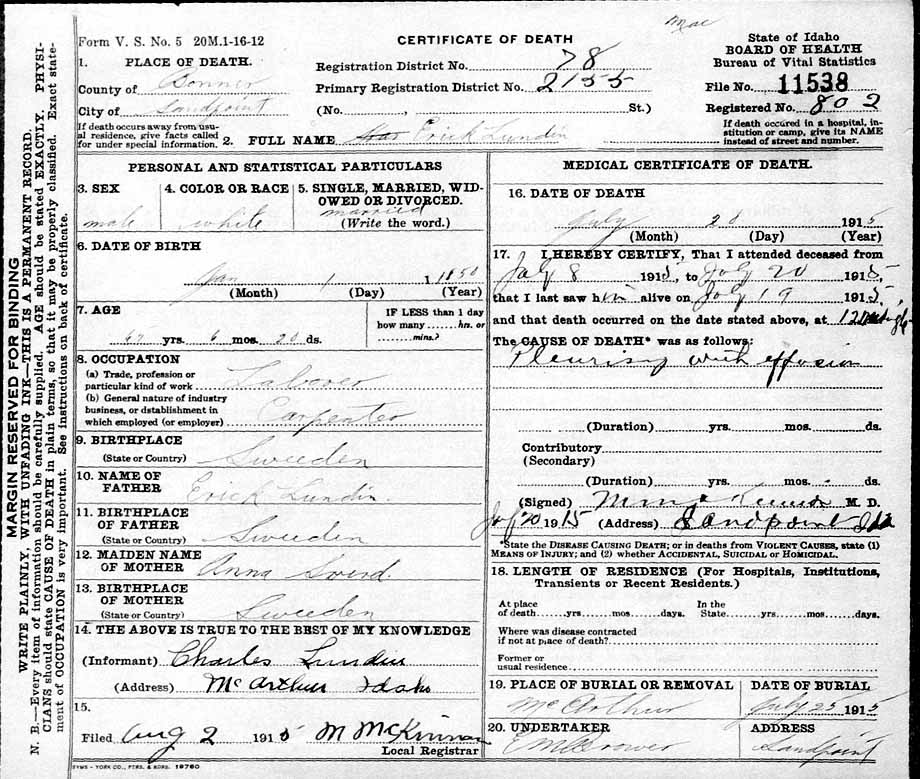 Mac
Form V. S. No. 5 20M.1-16-12
CERTIFICATE OF DEATH
State of Idaho
BOARD OF HEALTH
Bureau of Vital Statistics
1. PLACE OF DEATH.
County of Bonner
City of Sandpoint
Registration District No. 78
Primary Registration District No. 2155
(No. , St.)
File No. 11538
Registered No. 802
If death occurs away from usual residence, give facts called for under special information.
2. FULL NAME Erick Lundin
If death occured in a hospital, institution or camp, give its NAME instead of street and number.
PERSONAL AND STATISTICAL PARTICULARS
3. SEX
male
4. COLOR OR RACE
white
5. SINGLE, MARRIED, WIDOWED OR DIVORCED.
married
(Write the word.)
6. DATE OF BIRTH
Jan 1 1850
(Month) (Day) (Year)
7. AGE
yrs. 6 mos. 20 ds.
IF LESS than 1 day
how many hrs. or
mins.?
8. OCCUPATION
(a) Trade, profession or
particular kind of work Laborer
(b) General nature of industry
business, or dstablishment in
which employed (or employer) Carpenter
9. BIRTHPLACE
(State or Country) Sweeden
10. NAME OF
FATHER Erick Lundin
11. BIRTHPLACE
OF FATHER
(State or Country) Sweeden
12. MAIDEN NAME
OF MOTHER Anna
13. BIRTHPLACE
OF MOTHER
(State or Country) Sweeden
14. THE ABOVE IS TRUE TO THE BEST OF MY KNOWLEDGE
(Informant) Charles Lundin
(Address) McArthur Idaho
15.
Filed Aug 2 1915 M McKinnon
Local Registrar
SYMS - YORK CO., PTRS. & BDRS. 19760
MEDICAL CERTIFICATE OF DEATH.
16. DATE OF DEATH
July 20 1915
(Month) (Day) (Year)
17. I HEREBY CERTIFY, That I attended deceased from
July 8 1915, to July 20 1915,
that I last saw him alive on July 19 1915.
and that death occurred on the date stated above, at 12
The CAUSE OF DEATH* was as follows:
Pleurisy with effusion
(Duration) yrs. mos. ds.
Contributory
(Secondary)
(Duration) yrs. mos. ds.
(Signed) M. D.
July 20 1915 (Address) Sandpoint Ida
*State the DISEASE CAUSING DEATH; or in deaths from VIOLENT CAUSES, state (1)
MEANS OF INJURY; and (2) whether ACCIDENTAL, SUICIDAL or HOMICIDAL.
18. LENGTH OF RESIDENCE (For Hospitals, Institutions,
Transients or Recent Residents.)
At place
of death yrs mos days.
In the
State yrs mos days.
Where was disease contracted
if not at place of death?
Former or
usual residence
19. PLACE OF BURIAL OR REMOVAL
McArthur
DATE OF BURIAL
July 25 1915
20. UNDERTAKER
ADDRESS
Sandpoint
MARGIN RESERVED FOR BINDING
WRITE PLAINLY, WITH UNFADING INK—THIS IS A PERMANENT RECORD.
N. B.—Every item of information should be carefully supplied. AGE should be stated EXACTLY. PHYSI-
CIANS should state CAUSE OF DEATH in plain terms, so that it may be properly classified. Exact state-
ment of OCCUPATION is very important. See instructions on back of certificate.